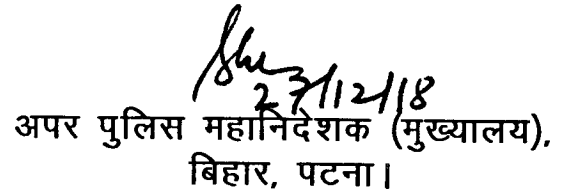 27/12/18
अपर पुलिस महानिदेशक (मुख्यालय),
बिहार, पटना।